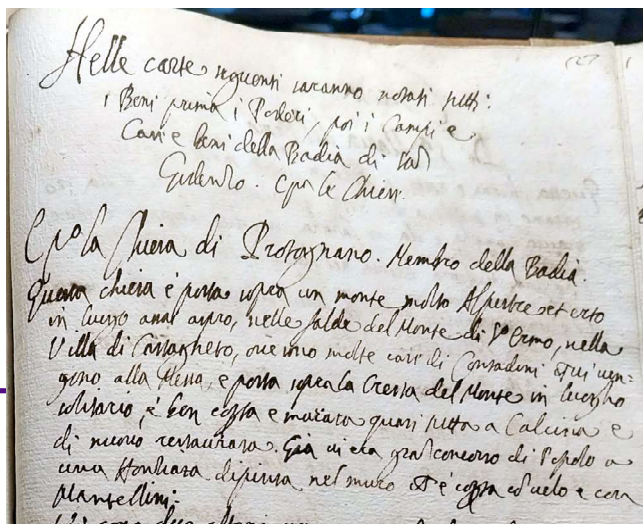 Nelle carte seguenti saranno notati tutti:
i Beni prima i Poderi, poi i Campi e
Case e beni della Badia di San
Gudenzo. Cpa le Chiese.
Cpa la Chiesa di Petrognano. Membro della Badia.
Questa chiesa è posta sopra un monte molto Alpestre et erto
in luogo assai aspro, nelle falde del Monte di S.to Ermo, nella
Villa di Castagneto, ove sono molte case di Contadini qui ven-
gono alla Messa, è posta sopra la Cresta del Monte in luogho
solitario, è ben copta e murata quasi tutta a Calcina e
di nuovo restaurata. Già vi era gran concorso di Popolo a
una dipinta nel muro et è copta col velo e con
Mantellini: